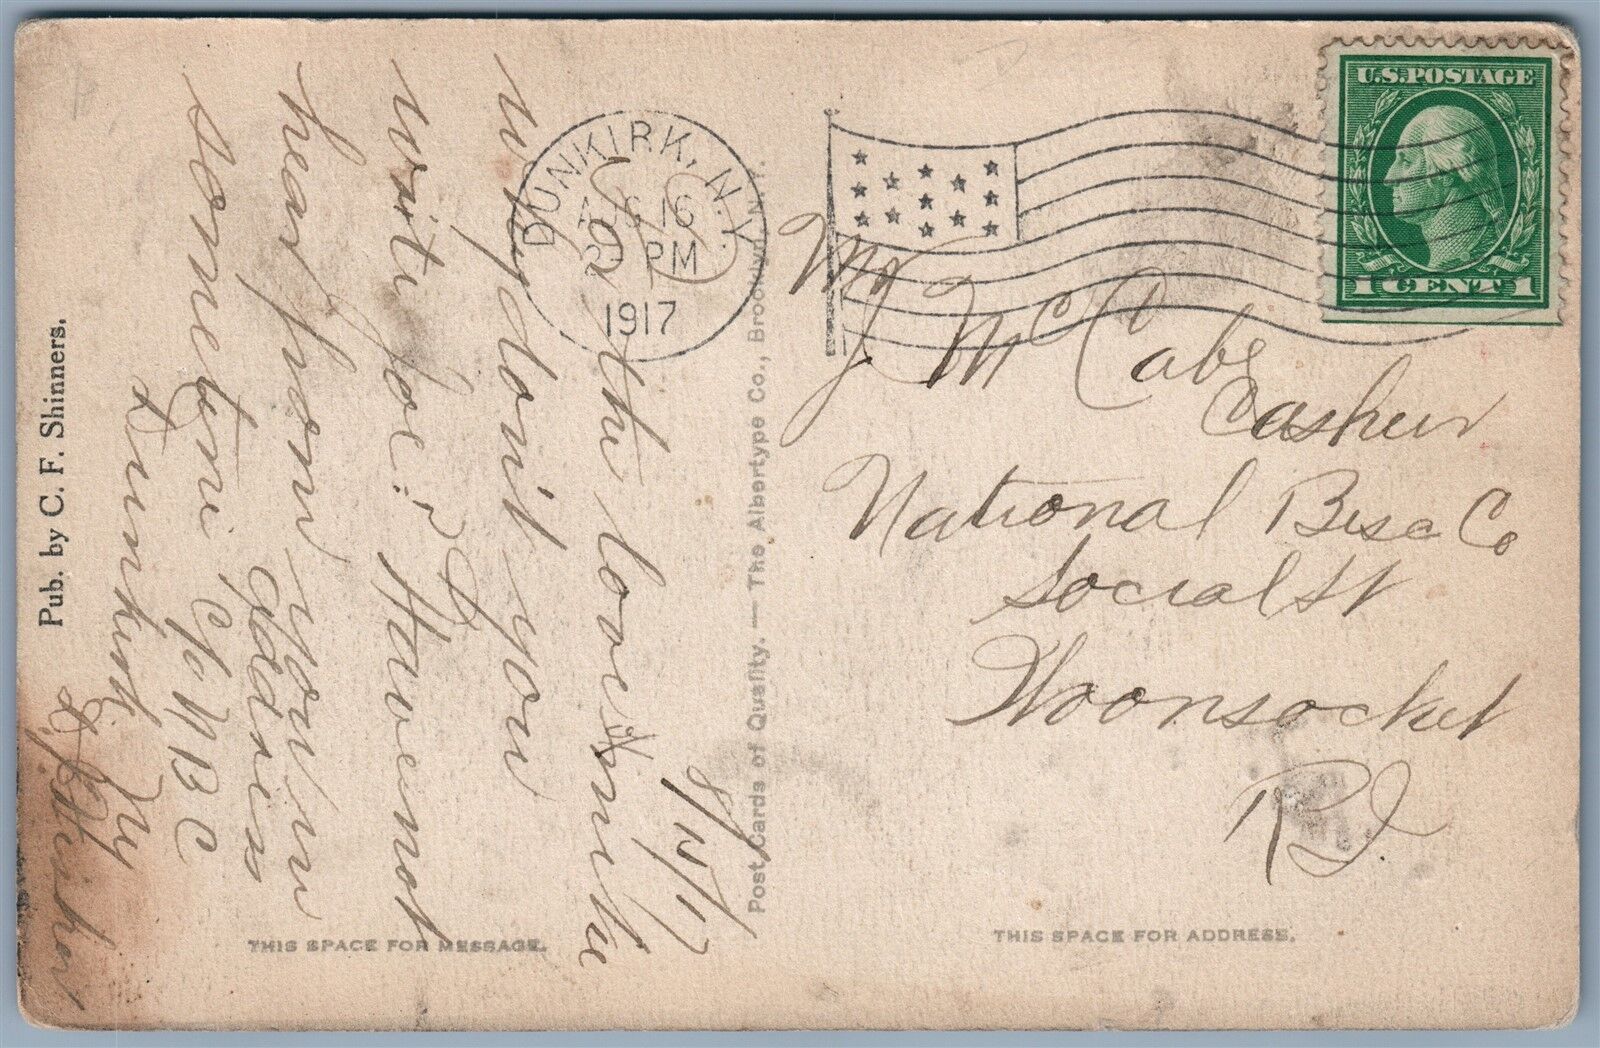 Pub. by C. F. Shinners.
8/15/17
For the love o' mike
why don't you
write Joe? Havenot
hear from you in
sometime
My address
c/o N B C
Dunkirk.
THIS SPACE FOR MESSAGE.
Post Cards of Quality. — The Albertype Co., Brooklyn, N.Y.
DUNKIRK, N.Y.
AUG 16
2 - PM
1917
U.S. POSTAGE
1 CENT 1
Mr
J McCabe
Cashier
National Bisc Co
Social St
Woonsocket
R.I.
THIS SPACE FOR ADDRESS.